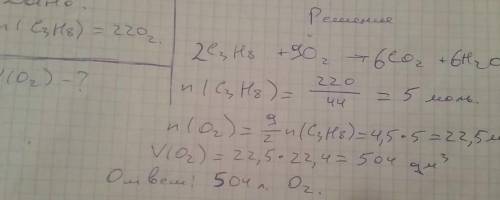 Решение
n(C₃H₈) = 220г.
2C₃H₈ + 9O₂ → 6CO₂ + 6H₂O
(O₂) – ?
n(C₃H₈) = 220/44 = 5 моль.
n(O₂) = 9/2 n(C₃H₈) = 4,5 · 5 = 22,5 м
V(O₂) = 22,5 · 22,4 = 504 дм³
Ответ: 504 л. O₂.